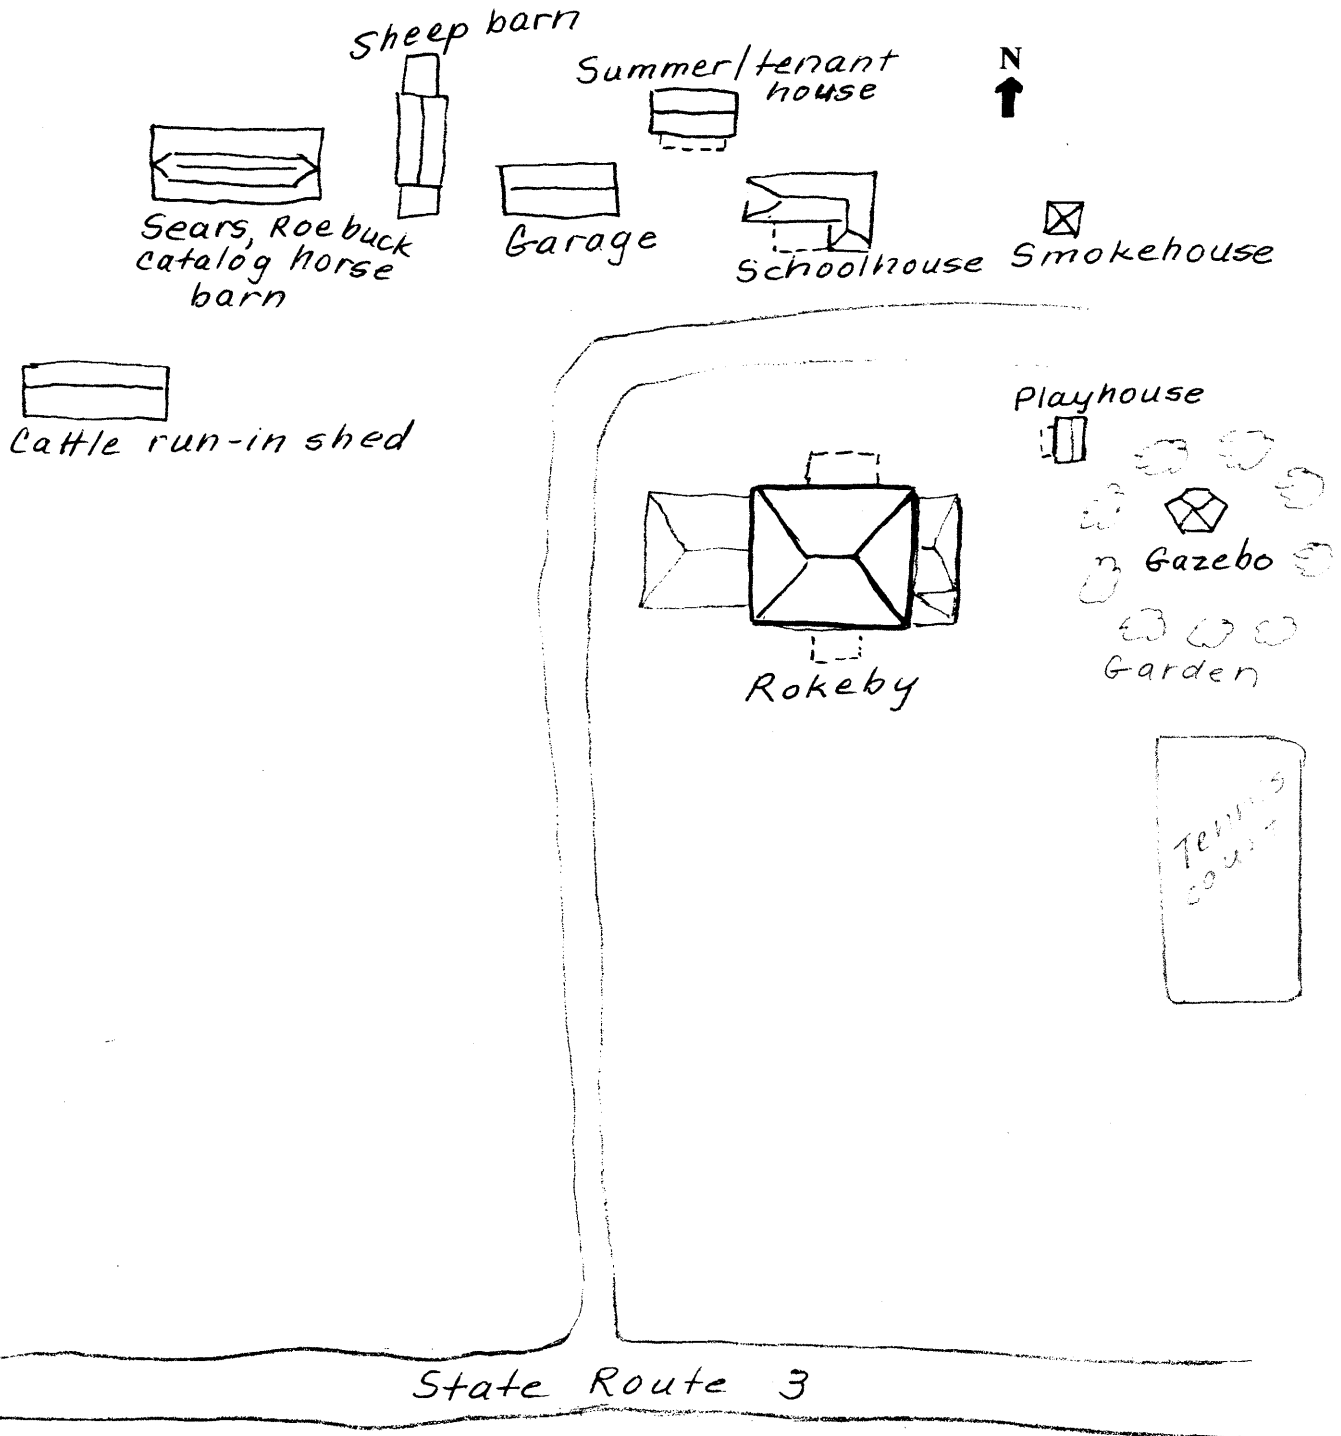 Sheep barn
Summer/tenant
house
N
Sears, Roebuck
catalog horse
barn
Garage
Schoolhouse
Smokehouse
Cattle run-in shed
Playhouse
Gazebo
Garden
Rokeby
Tennis
court
State Route 3